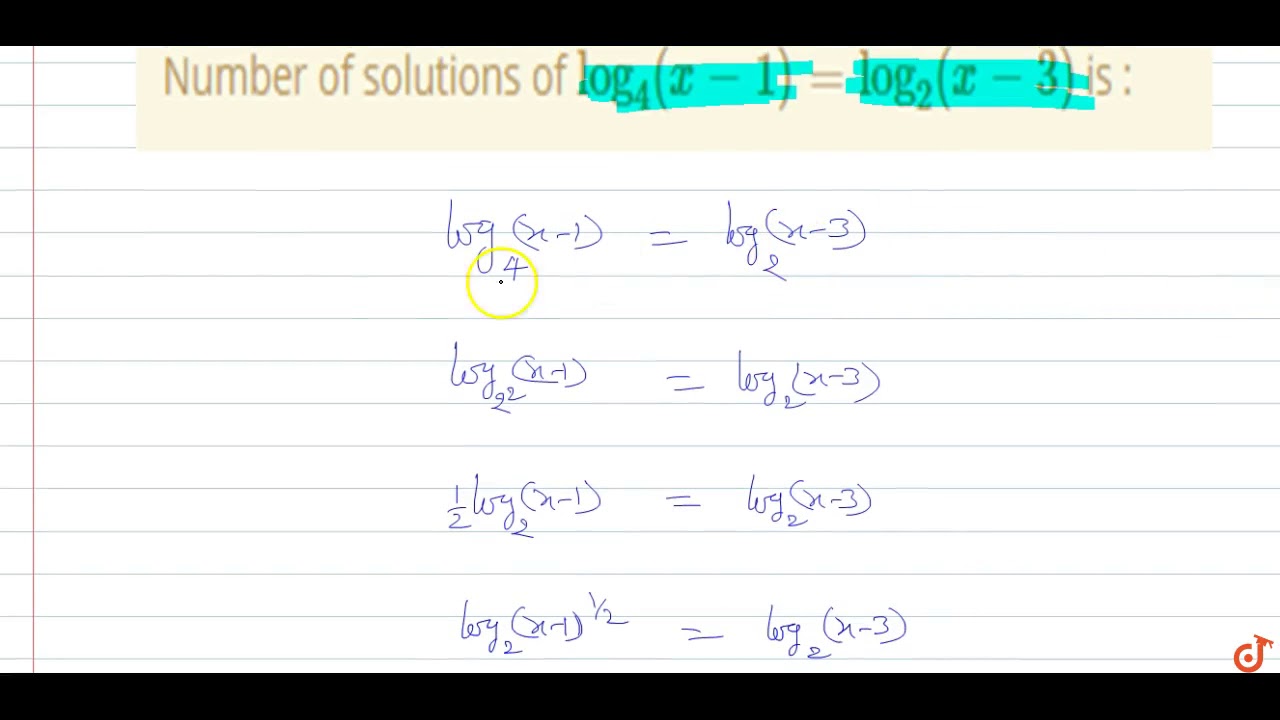 Number of solutions of log₄(x − 1) = log₂(x − 3) is :
log₄(x−1) = log₂(x−3)
log₂²(x−1) = log₂(x−3)
½ log₂(x−1) = log₂(x−3)
log₂(x−1)^1/2 = log₂(x−3)